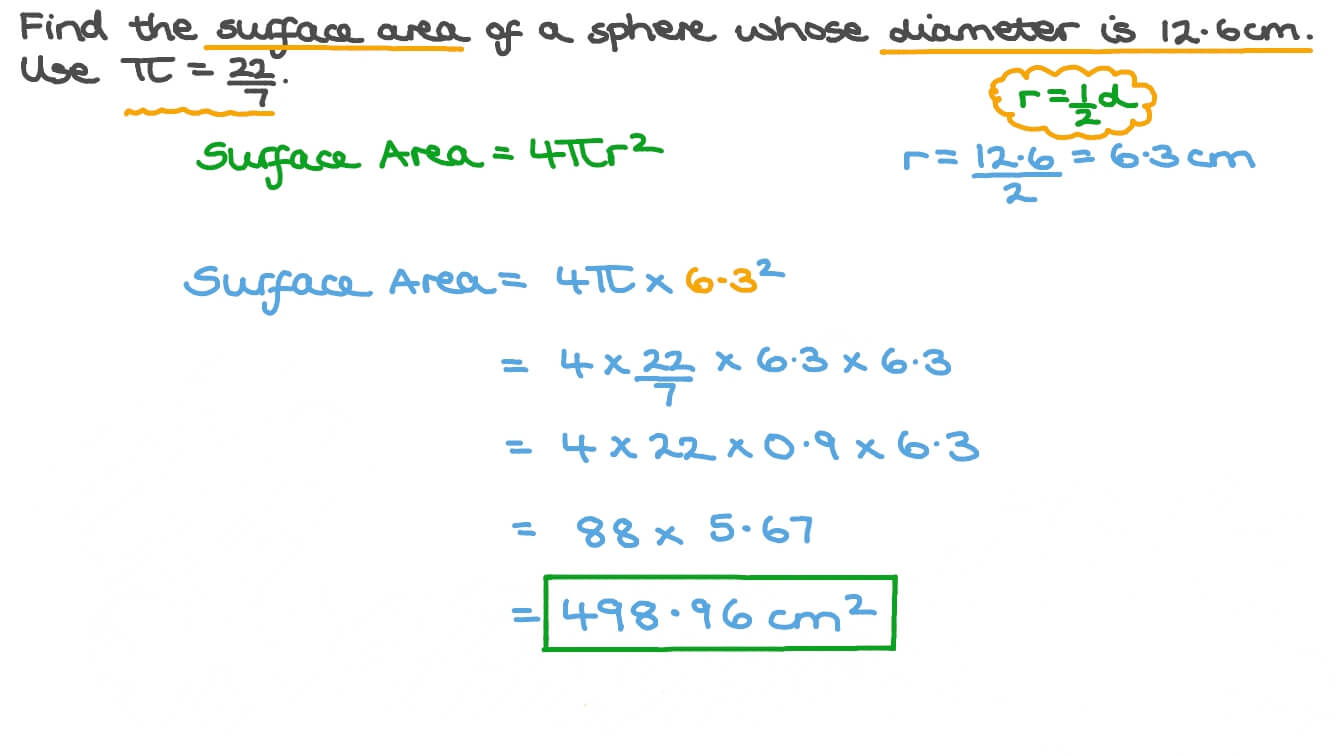 Find the surface area of a sphere whose diameter is 12·6cm.
Use π = 22/7.
r = 1/2 d
Surface Area = 4πr²
r = 12·6/2 = 6·3cm
Surface Area = 4π × 6·3²
= 4 × 22/7 × 6·3 × 6·3
= 4 × 22 × 0·9 × 6·3
= 88 × 5·67
= 498·96 cm²